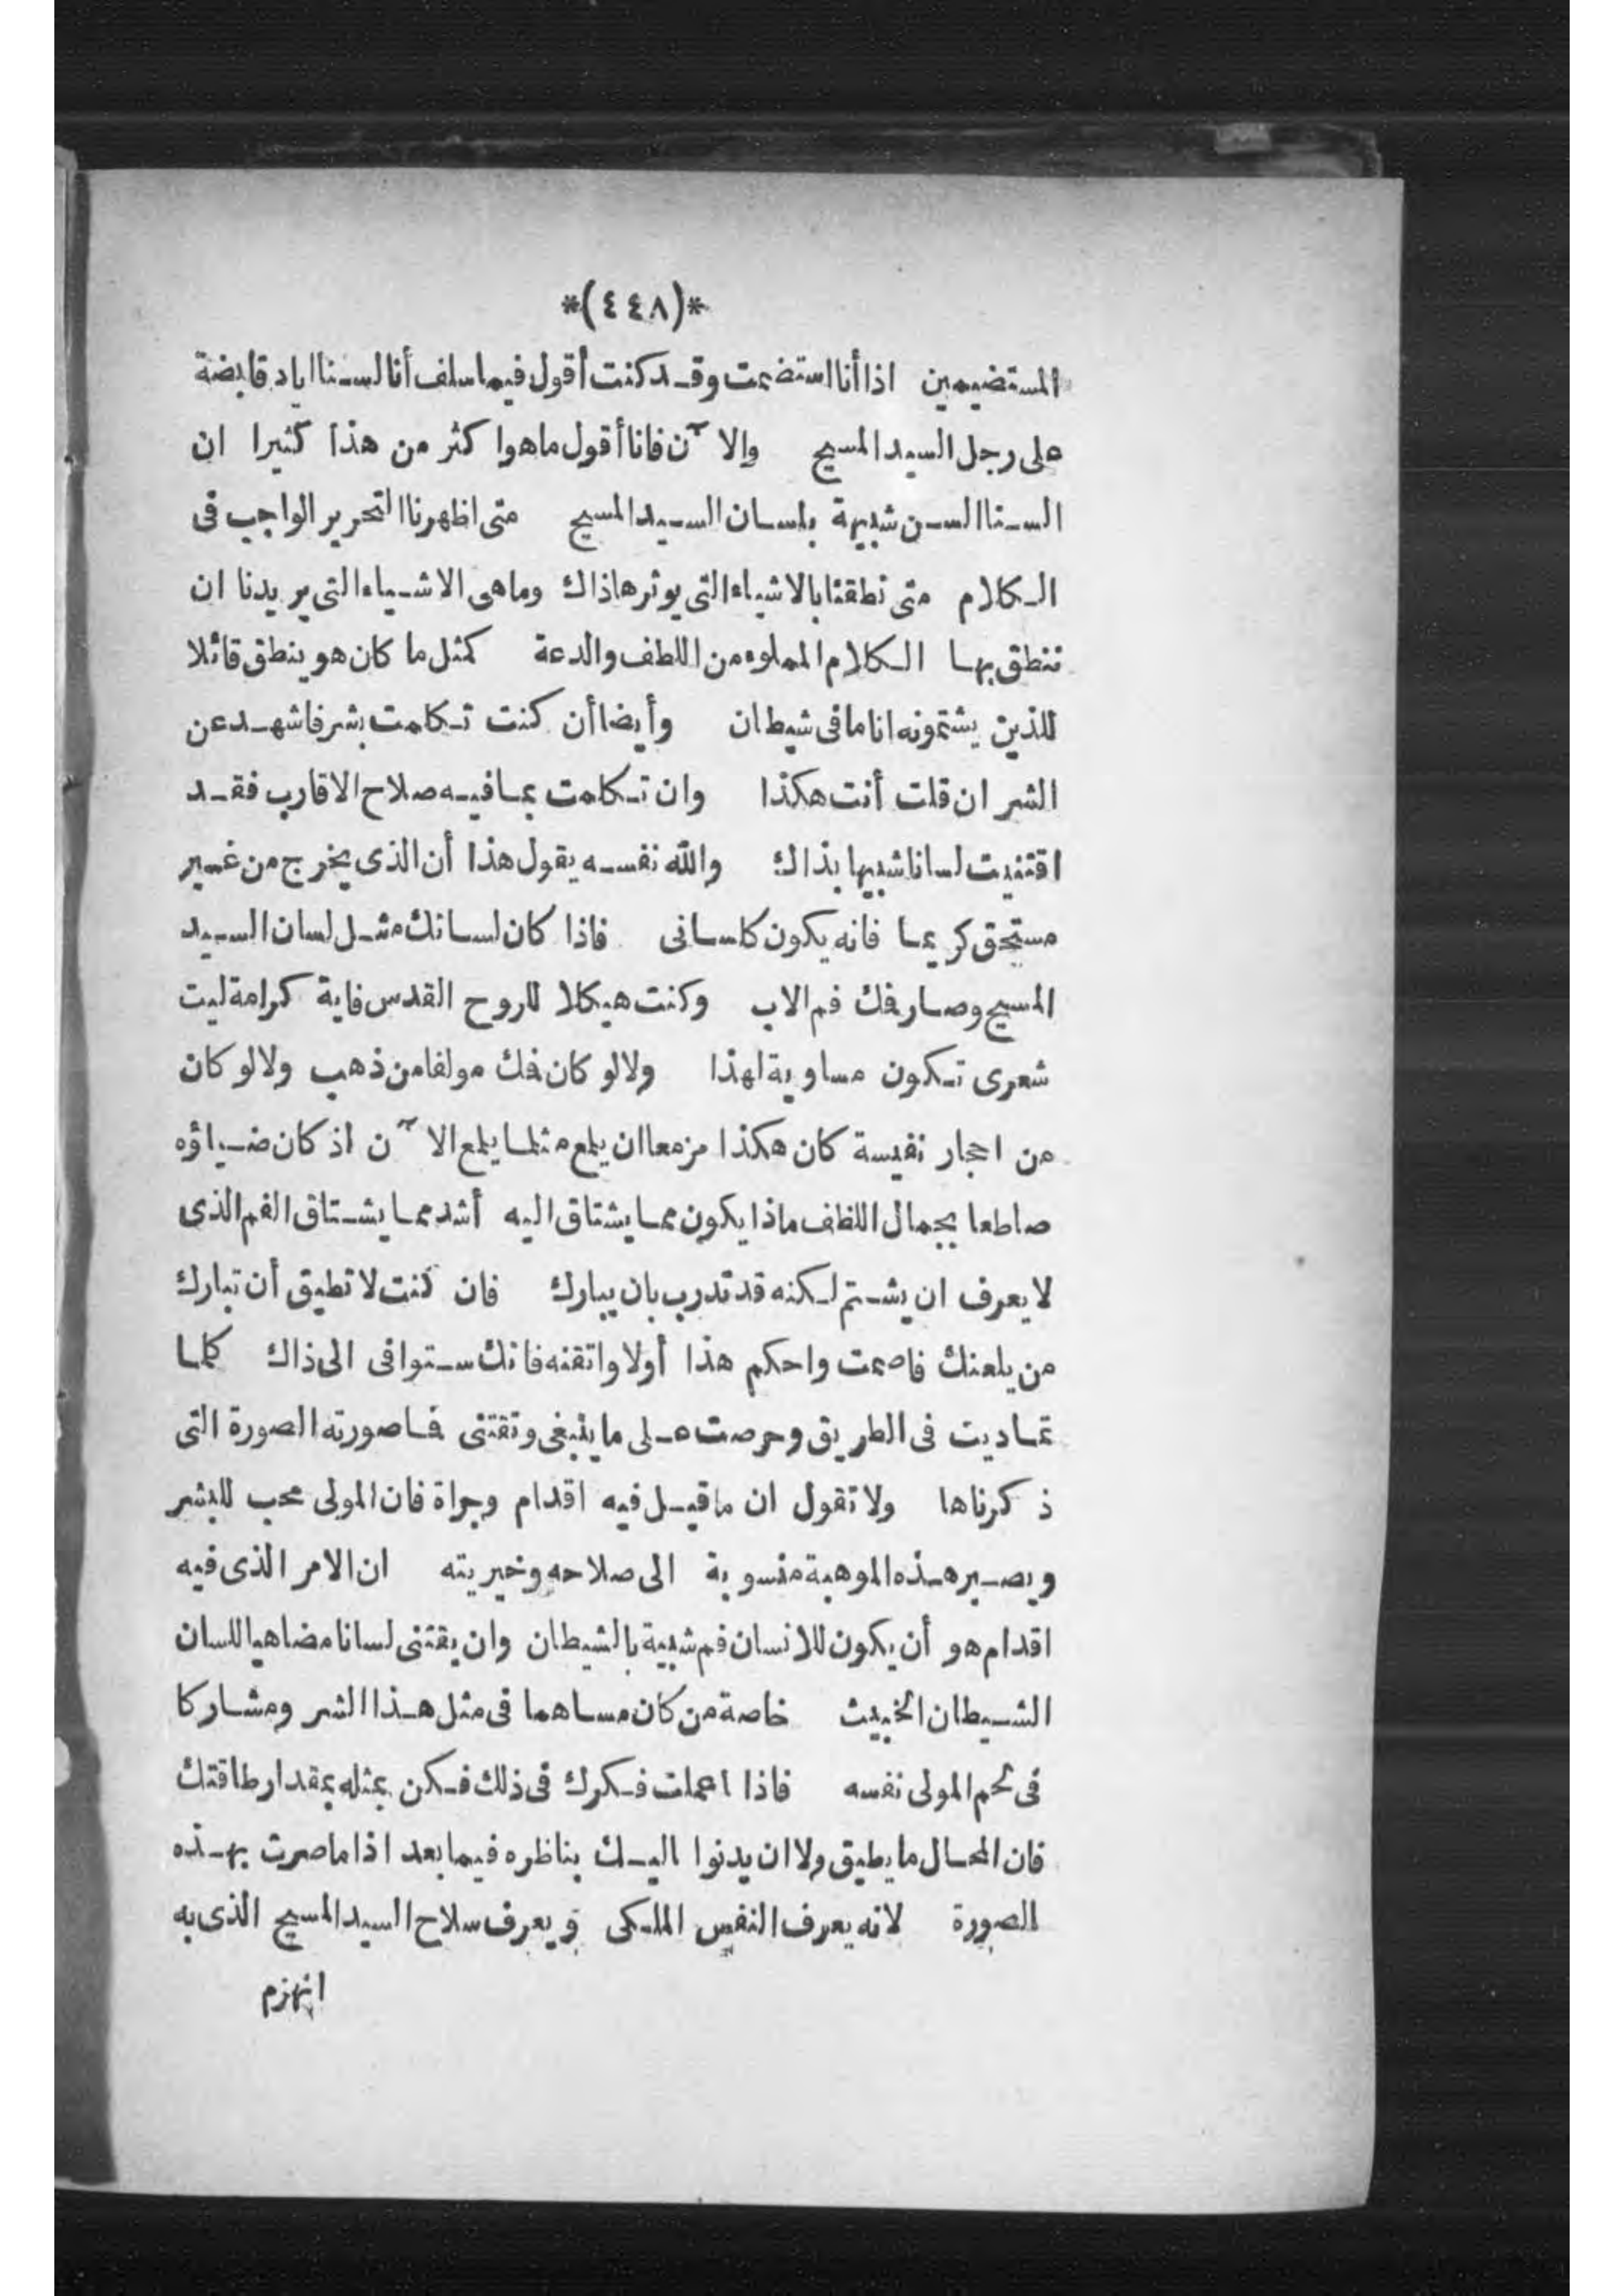 *(٤٤٨)*
المستضيمين اذا أنا استضمت وقد كنت أقول فيما سلف أنا لسنا اياد قابضة
على رجل السيد المسيح والآن فانا أقول ما هوا كثر من هذا كثيرا ان
السننا السن شبيهة بلسان السيد المسيح متى اظهرنا التحرير الواجب فى
الكلام متى نطقنا بالاشياء التى يوثرها ذاك وما هى الاشياء التى يريدنا ان
ننطق بها الكلام المملوء من اللطف والدعة كمثل ما كان هو ينطق قائلا
للذين يشتمونه انا ما فى شيطان وأيضا أن كنت تكلمت بشر فاشهد عن
الشر ان قلت أنت هكذا وان تكلمت بما فيه صلاح الاقارب فقد
اقتنيت لسانا شبيها بذاك والله نفسه يقول هذا أن الذى يخرج من غير
مستحق كريما فانه يكون كلسانى فاذا كان لسانك مثل لسان السيد
المسيح وصار فك فم الاب وكنت هيكلا للروح القدس فاية كرامة ليت
شعرى تكون مساوية لهذا ولا لو كان فك مولفا من ذهب ولا لو كان
من احجار نفيسة كان هكذا مزمعا ان يلمع مثلما يلمع الآن اذ كان ضياؤه
صاطعا بجمال اللظف ماذا يكون مما يشتاق اليه أشد مما يشتاق الفم الذى
لا يعرف ان يشتم لكنه قد تدرب بان يبارك فان كنت لا تطيق أن تبارك
من يلعنك فاصمت واحكم هذا أولا واتقنه فانك ستوافى الى ذاك كلما
تماديت فى الطريق وحرصت على ما ينبغى وتقتنى فما صورته الصورة التى
ذكرناها ولا تقول ان ما قيل فيه اقدام وجراة فان المولى محب للبشر
ويصير هذه الموهبة منسوبة الى صلاحه وخيريته ان الامر الذى فيه
اقدام هو أن يكون للانسان فم شبية بالشيطان وان يقتنى لسانا مضاهيا للسان
الشيطان الخبيث خاصة من كان مساهما فى مثل هذا الشر ومشاركا
فى لحم المولى نفسه فاذا اعملت فكرك فى ذلك فكن بمثله بمقدار طاقتك
فان المحال ما يطيق ولا ان يدنوا اليك بناظره فيما بعد اذا ما صرت بهذه
الصورة لانه يعرف النفس الملكى ويعرف سلاح السيد المسيح الذى به
انهزم